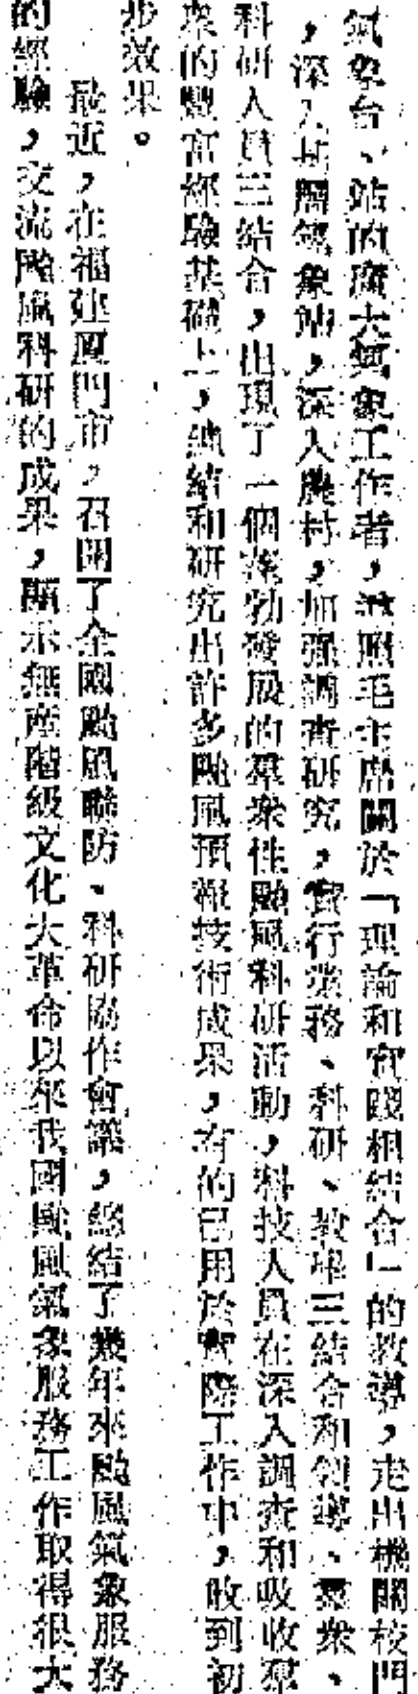 氣象台、站的廣大氣象工作者，遵照毛主席關於「理論和實踐相結合」的教導，走出機關校門
，深入基層氣象站，深入農村，加強調查研究，實行業務、科研、教學三結合和領導、羣衆、
科研人員三結合，出現了一個蓬勃發展的羣衆性颱風科研活動，科技人員在深入調查和吸收羣
衆的豐富經驗基礎上，總結和研究出許多颱風預報技術成果，有的已用於實際工作中，收到初
步效果。
最近，在福建厦門市，召開了全國颱風聯防、科研協作會議，總結了幾年來颱風氣象服務
的經驗，交流颱風科研的成果，顯示無產階級文化大革命以來我國颱風氣象服務工作取得很大